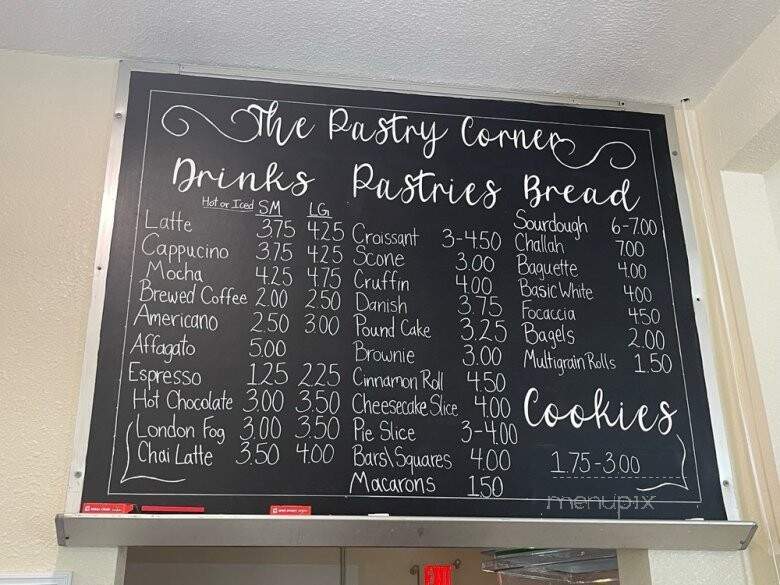 The Pastry Corner
Drinks
Hot or Iced SM LG
Latte 3.75 4.25
Cappucino 3.75 4.25
Mocha 4.25 4.75
Brewed Coffee 2.00 2.50
Americano 2.50 3.00
Affagato 5.00
Espresso 1.25 2.25
Hot Chocolate 3.00 3.50
London Fog 3.00 3.50
Chai Latte 3.50 4.00
Pastries
Croissant 3-4.50
Scone 3.00
Cruffin 4.00
Danish 3.75
Pound Cake 3.25
Brownie 3.00
Cinnamon Roll 4.50
Cheesecake Slice 4.00
Pie Slice 3-4.00
Bars\Squares 4.00
Macarons 1.50
Bread
Sourdough 6-7.00
Challah 7.00
Baguette 4.00
Basic White 4.00
Focaccia 4.50
Bagels 2.00
Multigrain Rolls 1.50
Cookies
1.75-3.00
menupix
EXIT